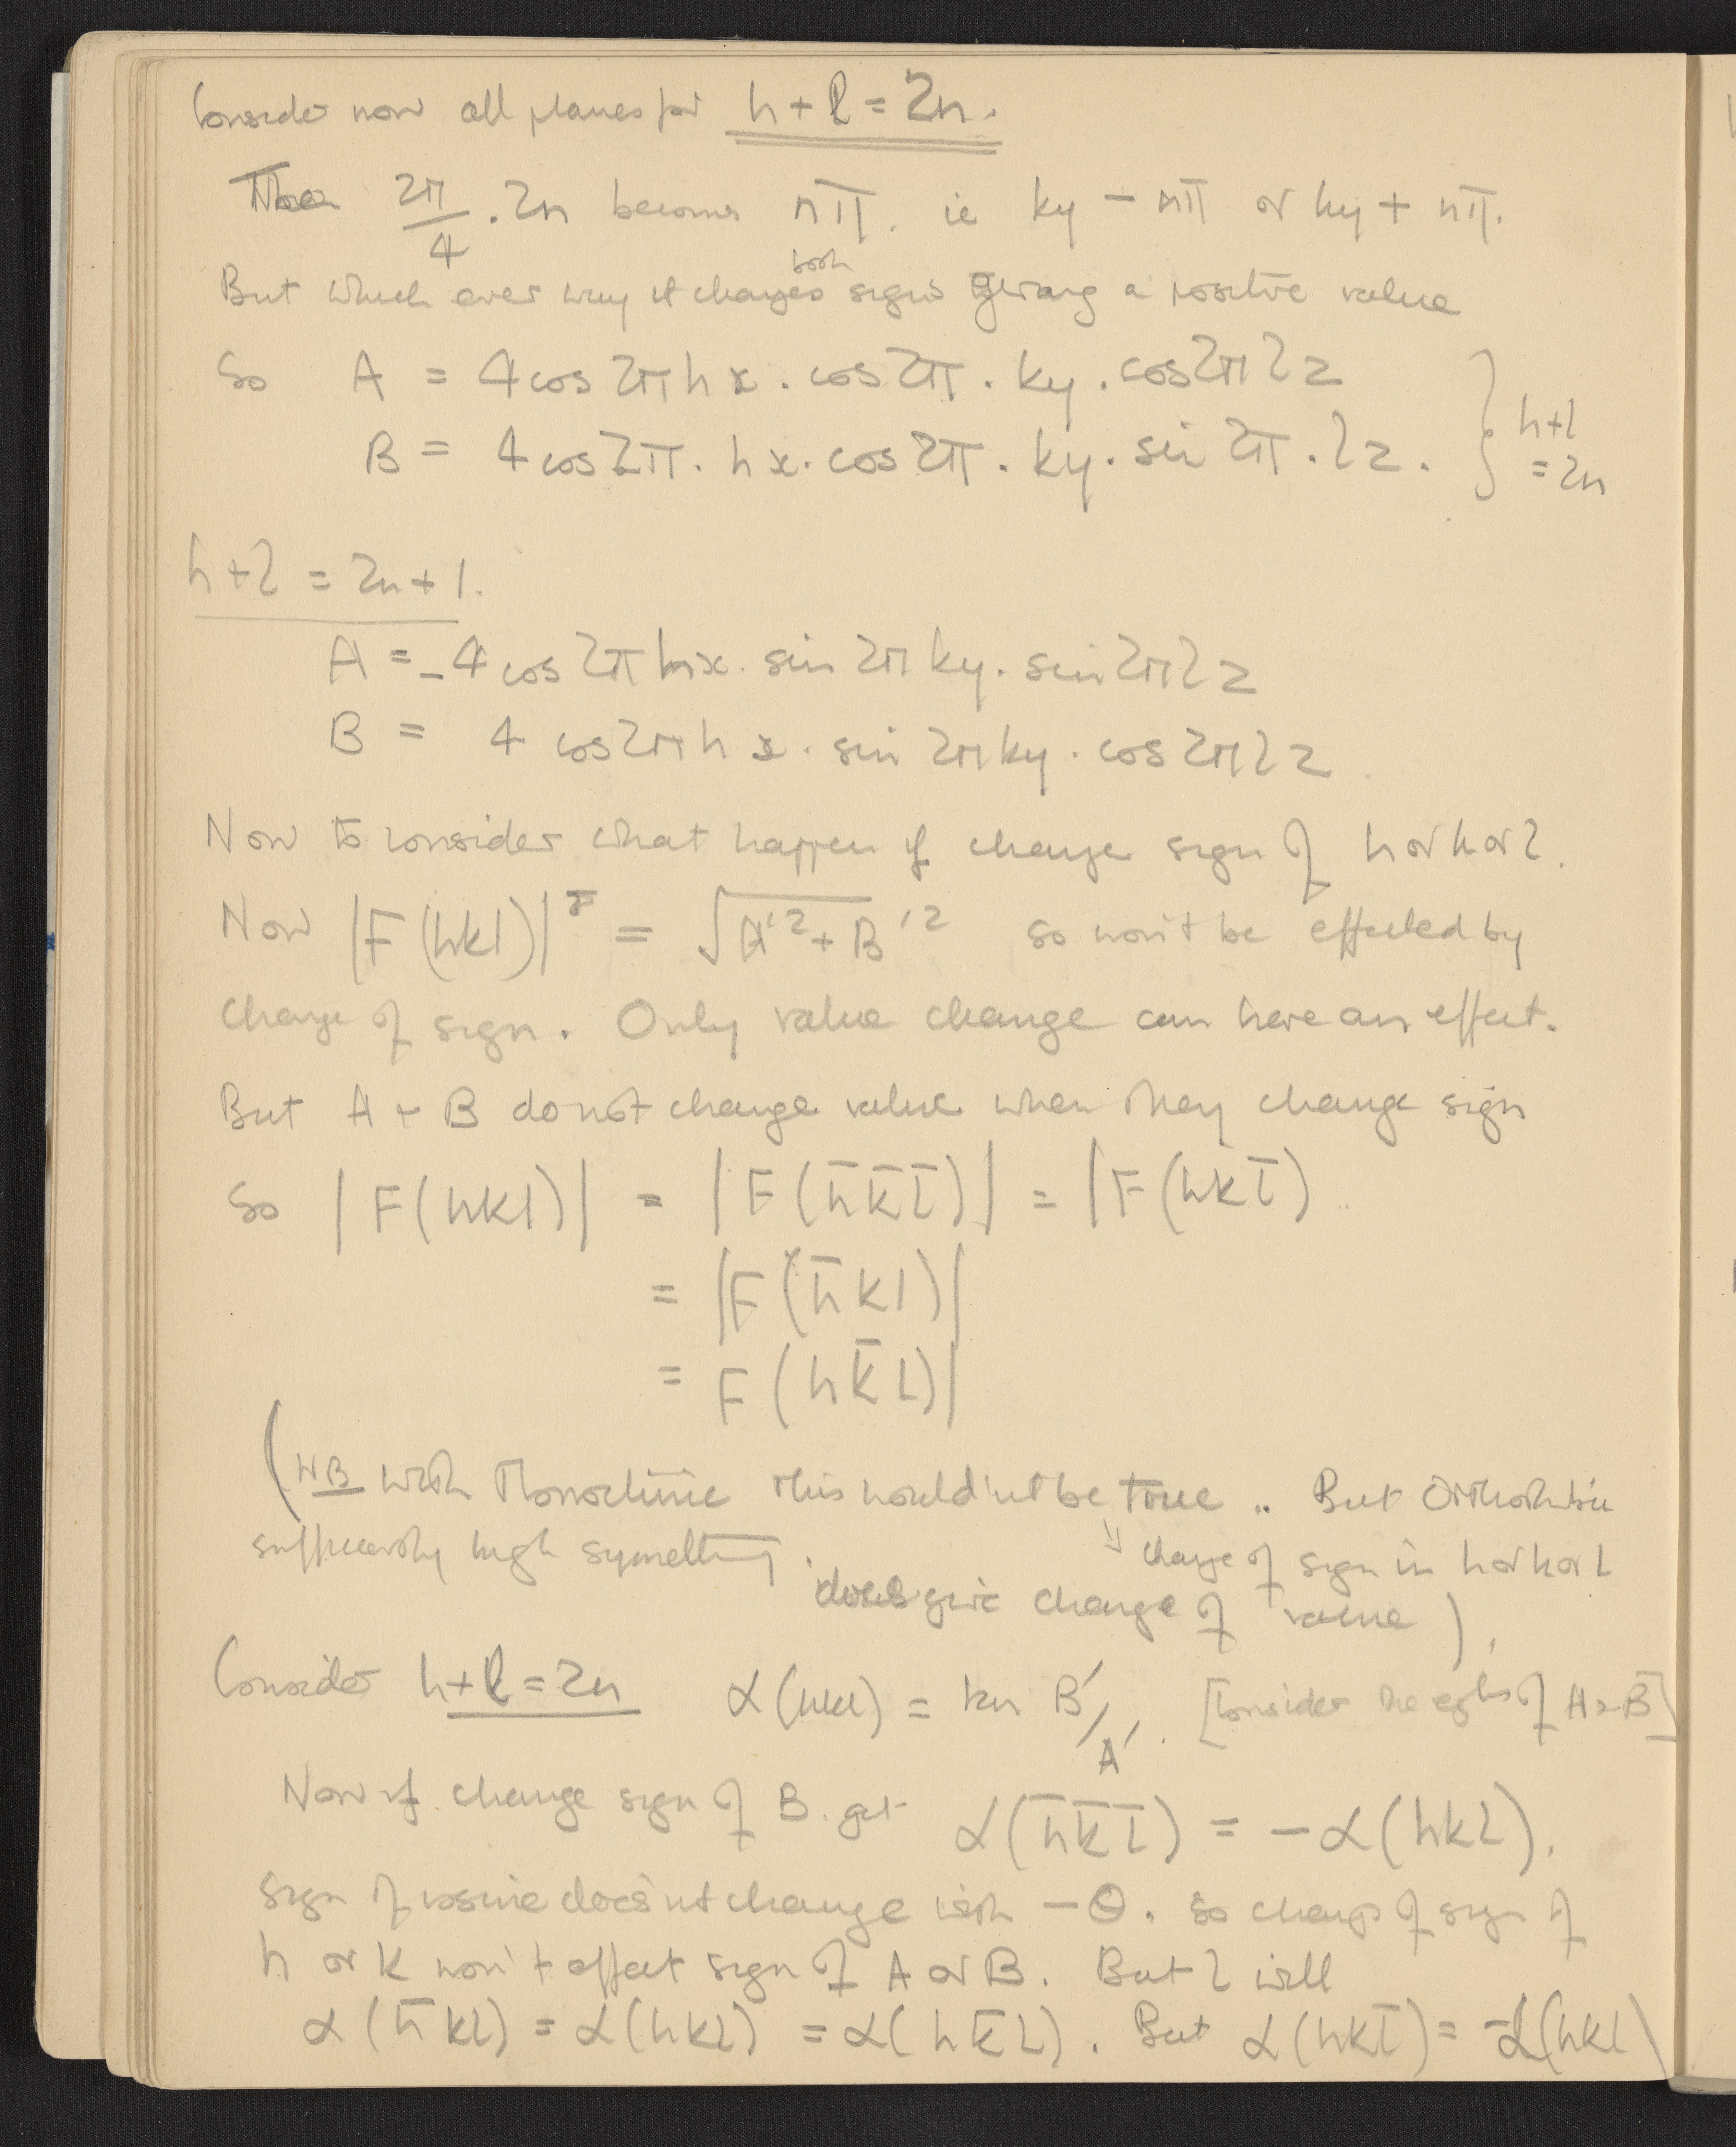 Consider now all planes for h + l = 2n.
Then 2π/4 . 2n becomes nπ. ie ky - nπ or ky + nπ.
But which ever way it changes both signs giving a positive value
So A = 4cos2πhx . cos2π . ky . cos2πlz
B = 4cos2π . hx . cos2π . ky . sin 2π . lz . } h+l = 2n
h+l = 2n+1.
A = -4 cos2πhx . sin 2πky . sin2πlz
B = 4 cos2πhx . sin 2πky . cos2πlz
Now to consider what happen if change sign of h or k or l.
Now |F(hkl)| = √A'2 + B'2 so won't be effected by
change of sign. Only value change can have an effect.
But A + B do not change value when they change sign
So |F(hkl)| = |F(h̄k̄l̄)| = |F(hkl̄)
= |F(h̄kl)|
= F(hk̄l)|
(NB with Monoclinic this would'nt be true .. But Orthorhombic
sufficiently high symettry .
change of sign in h or k or l
does give change of value ).
Consider h+l = 2n α(hkl) = tan B'/A' . [Consider the eqtns of A + B]
Now if change sign of B get α(h̄k̄l̄) = -α(hkl).
Sign of cosine does'nt change with -θ. So change of sign of
h or k won't effect sign of A or B. But l will
α(h̄kl) = α(hkl) = α(hk̄l). But α(hkl̄) = -α(hkl)